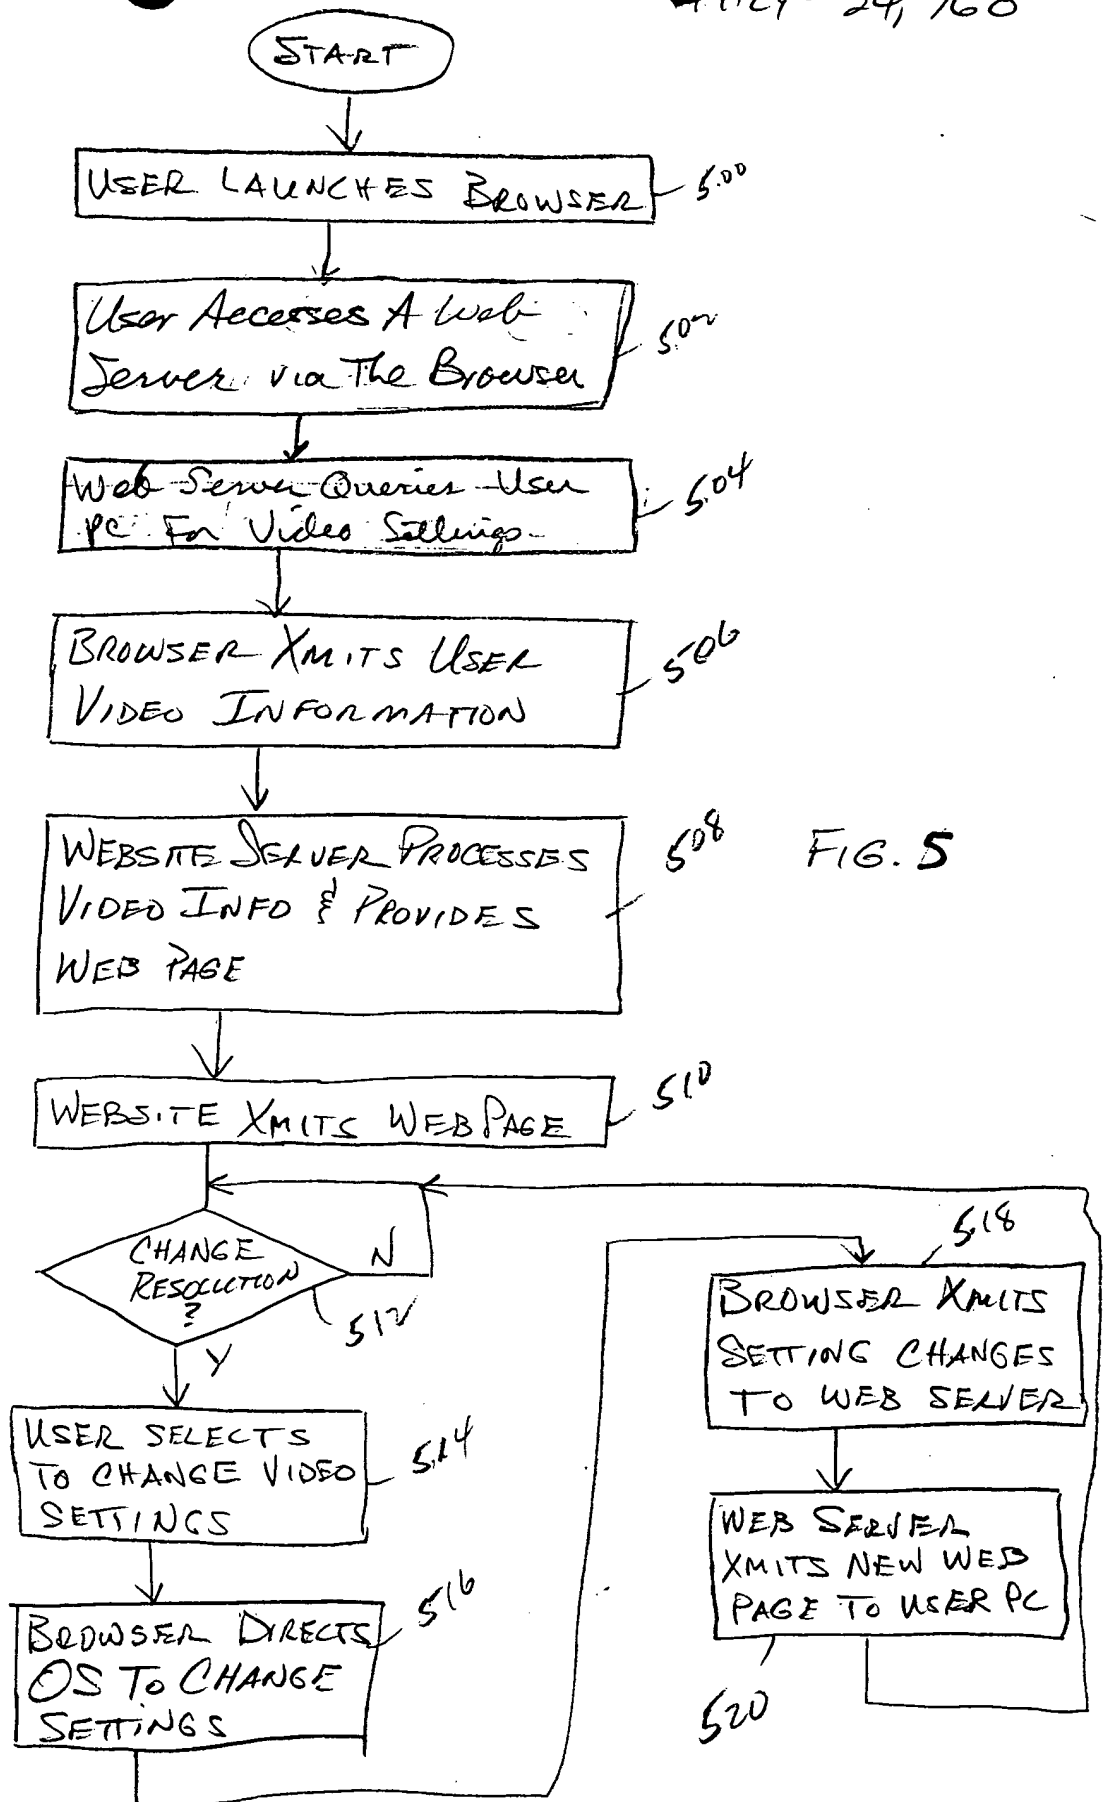 24, 760
START
USER LAUNCHES BROWSER
500
User Accesses A Web
Server via The Browser
502
Web Server Queries User
PC For Video Settings
504
BROWSER XMITS USER
VIDEO INFORMATION
506
WEBSITE SERVER PROCESSES
VIDEO INFO & PROVIDES
WEB PAGE
508
FIG. 5
WEBSITE XMITS WEB PAGE
510
CHANGE
RESOLUTION
?
N
512
Y
USER SELECTS
TO CHANGE VIDEO
SETTINGS
514
BROWSER DIRECTS
OS TO CHANGE
SETTINGS
516
518
BROWSER XMITS
SETTING CHANGES
TO WEB SERVER
WEB SERVER
XMITS NEW WEB
PAGE TO USER PC
520